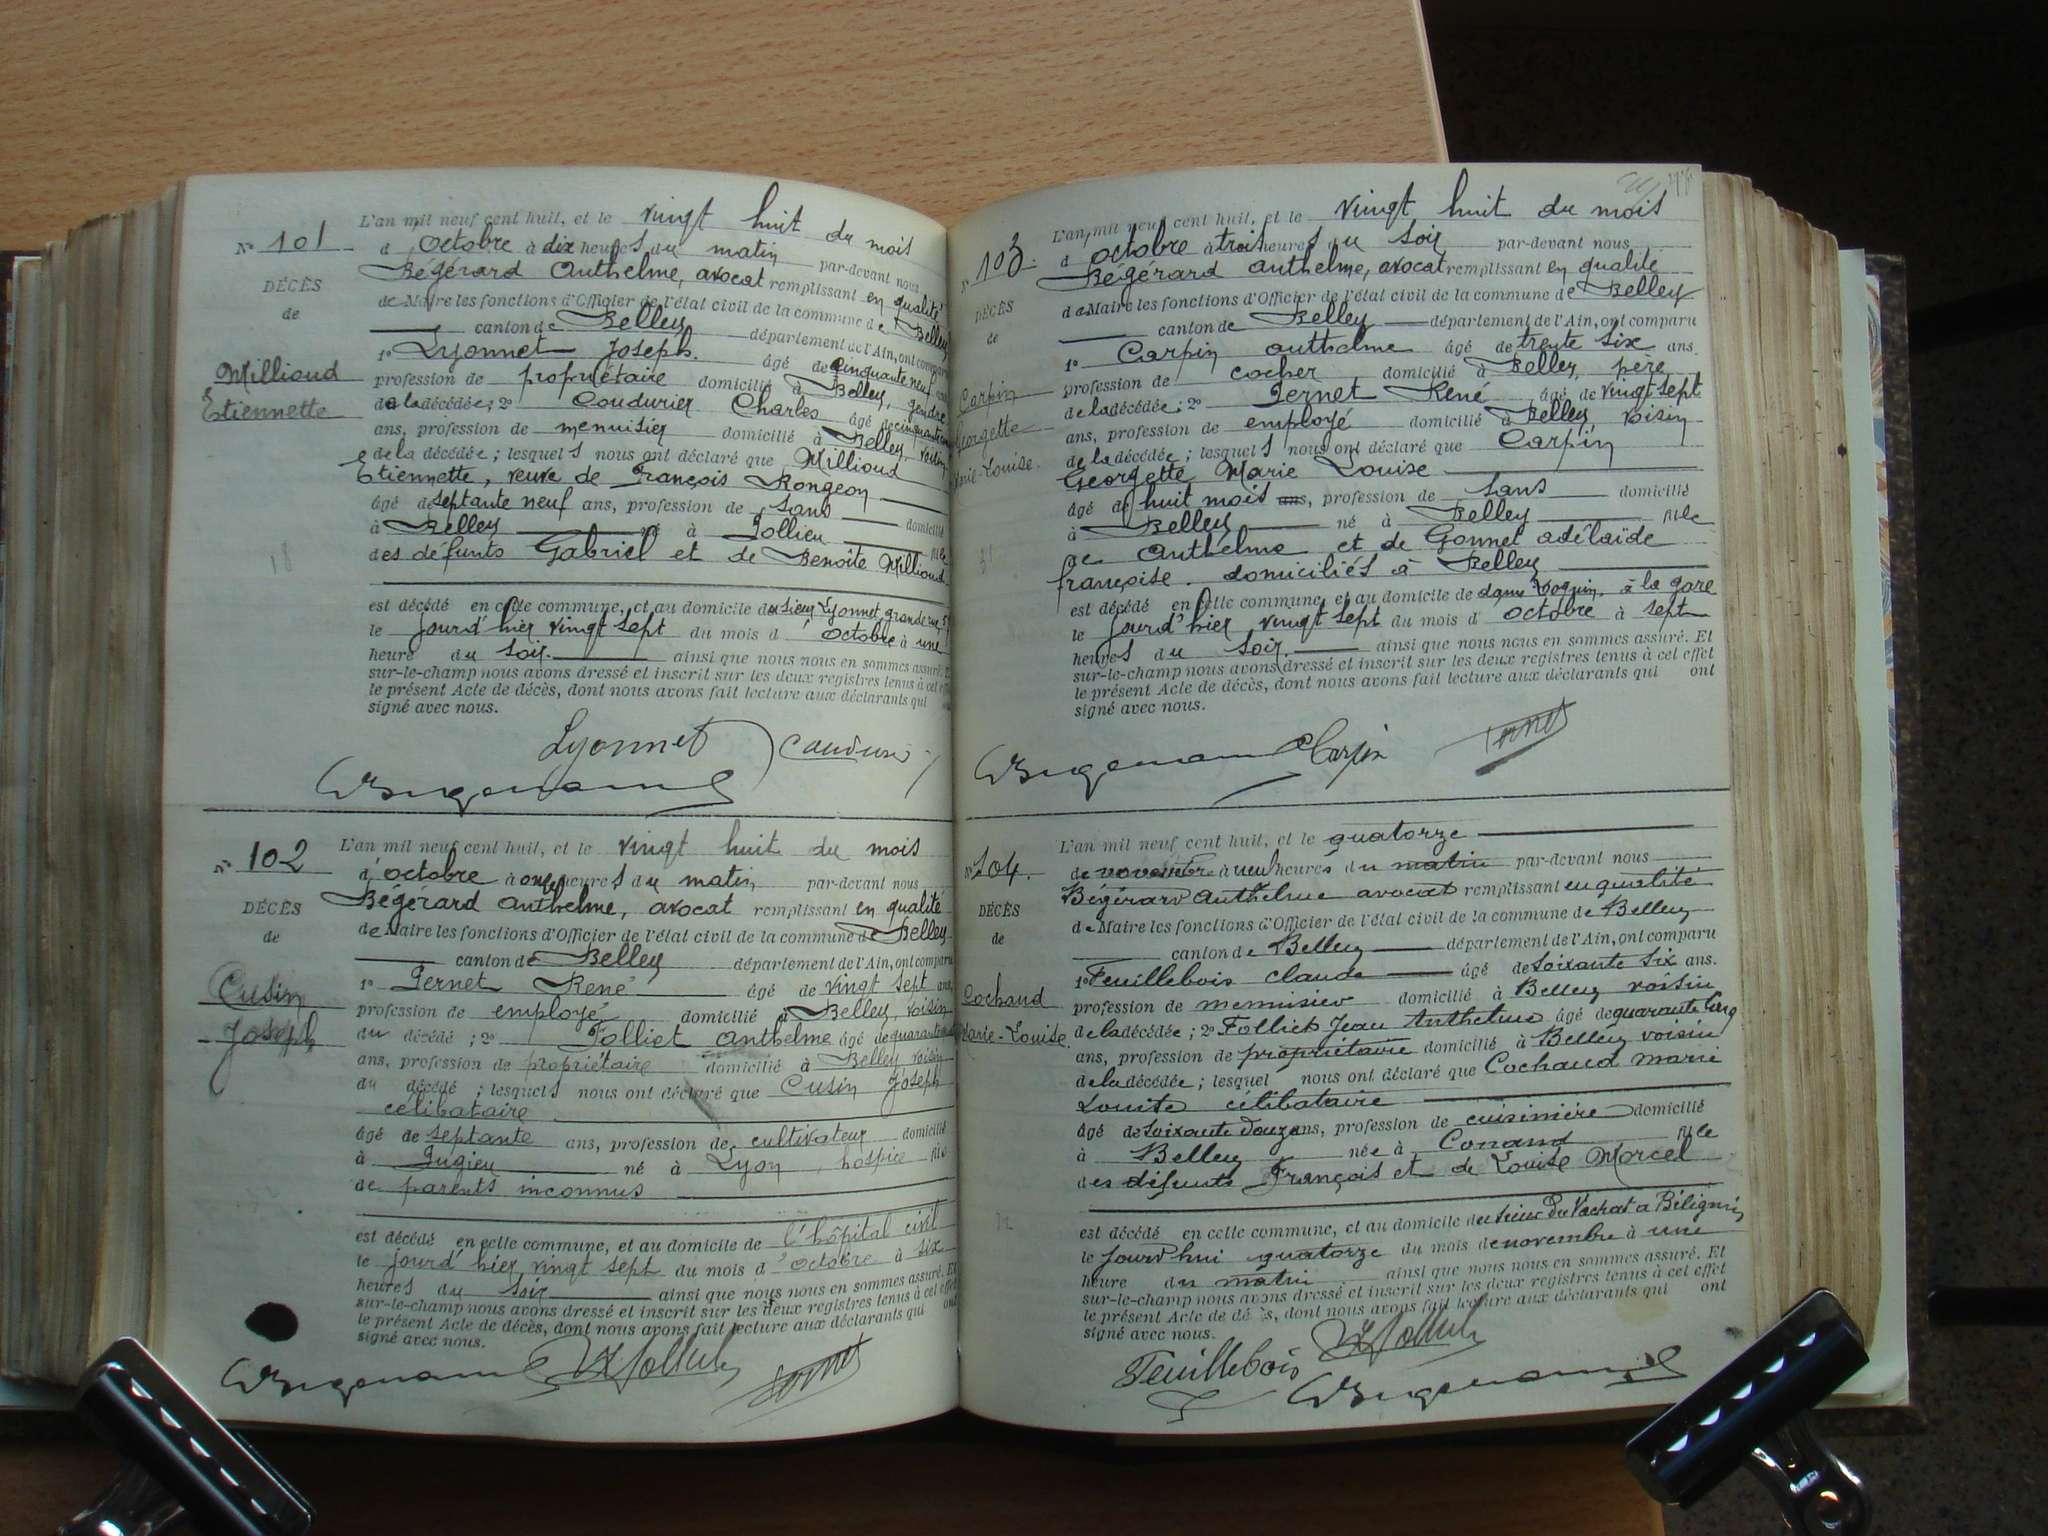 L'an mil neuf cent huit, et le vingt huit du mois
N° 101
d'octobre à dix heures du matin par-devant nous
Bégérard Anthelme, avocat remplissant en qualité
DÉCÈS
de Maire les fonctions d'Officier de l'état civil de la commune de Belley
de
canton de Belley département de l'Ain, ont comparu
1° Lyonnet Joseph. âgé de cinquante neuf ans
Millioud
profession de propriétaire domicilié à Belley, gendre
Etiennette
de la décédée; 2° Coudurier Charles âgé de cinquante
ans, profession de menuisier domicilié à Belley, voisin
de la décédée; lesquels nous ont déclaré que Millioud
Etiennette, veuve de François Rongeon
âgé de septante neuf ans, profession de sans domicilié
à Belley né à Pollieu fille
des défunts Gabriel et de Benoîte Millioud
18
est décédé en cette commune, et au domicile du sieur Lyonnet, grande rue, 5
le jourd'hier vingt sept du mois d'octobre à une
heure du soir. ainsi que nous nous en sommes assuré. Et
sur-le-champ nous avons dressé et inscrit sur les deux registres tenus à cet effet
le présent Acte de décès, dont nous avons fait lecture aux déclarants qui ont
signé avec nous.
Lyonnet Coudurier
L'an mil neuf cent huit, et le vingt huit du mois
N° 102
d'octobre à onze heures du matin par-devant nous
Bégérard Anthelme, avocat remplissant en qualité
DÉCÈS
de Maire les fonctions d'Officier de l'état civil de la commune de Belley
de
canton de Belley département de l'Ain, ont comparu
1° Pernet René âgé de vingt sept ans
Cusin
profession de employé domicilié à Belley, voisin
Joseph
du décédé; 2° Folliet Anthelme âgé de quarante
ans, profession de propriétaire domicilié à Belley voisin
du décédé; lesquels nous ont déclaré que Cusin Joseph
célibataire
âgé de septante ans, profession de cultivateur domicilié
à Pugieu né à Lyon, hospice fils
de parents inconnus
est décédé en cette commune, et au domicile de l'hôpital civil
le jourd'hier vingt sept du mois d'octobre à six
heures du soir ainsi que nous nous en sommes assuré. Et
sur-le-champ nous avons dressé et inscrit sur les deux registres tenus à cet effet
le présent Acte de décès, dont nous avons fait lecture aux déclarants qui ont
signé avec nous.
L'an mil neuf cent huit, et le vingt huit du mois
N° 103
d'octobre à trois heures du soir par-devant nous
Bégérard Anthelme, avocat remplissant en qualité
DÉCÈS
de Maire les fonctions d'Officier de l'état civil de la commune de Belley
de
canton de Belley département de l'Ain, ont comparu
1° Carpin Anthelme âgé de trente six ans
Carpin
profession de cocher domicilié à Belley, père
Georgette
de la décédée; 2° Pernet René âgé de vingt sept
Marie-Louise.
ans, profession de employé domicilié à Belley, voisin
de la décédée; lesquels nous ont déclaré que Carpin
Georgette Marie Louise
âgé de huit mois ans, profession de sans domicilié
à Belley né à Belley fille
de Anthelme et de Gonnet adélaïde
françoise. domiciliés à Belley
est décédé en cette commune, et au domicile de dame à la gare
le jourd'hier, vingt sept du mois d'octobre à sept
heures du soir. ainsi que nous nous en sommes assuré. Et
sur-le-champ nous avons dressé et inscrit sur les deux registres tenus à cet effet
le présent Acte de décès, dont nous avons fait lecture aux déclarants qui ont
signé avec nous.
Carpin Pernet
L'an mil neuf cent huit, et le quatorze
N° 104.
de novembre à neuf heures du matin par-devant nous
Bégérard Anthelme avocat remplissant en qualité
DÉCÈS
de Maire les fonctions d'Officier de l'état civil de la commune de Belley
de
canton de Belley département de l'Ain, ont comparu
1° Feuillebois Claude âgé de soixante six ans.
Cochaud
profession de menuisier domicilié à Belley voisin
Marie-Louise.
de la décédée; 2° Folliet Jean Anthelme âgé de quarante cinq
ans, profession de propriétaire domicilié à Belley voisin
de la décédée; lesquel nous ont déclaré que Cochaud Marie
Louise célibataire
âgé de soixante douze ans, profession de cuisinière domicilié
à Belley née à Conand fille
des défunts François et de Louise Morcel
est décédé en cette commune, et au domicile du sieur Du Vachat à Bélignin
le jourd'hui quatorze du mois de novembre à une
heure du matin ainsi que nous nous en sommes assuré. Et
sur-le-champ nous avons dressé et inscrit sur les deux registres tenus à cet effet
le présent Acte de décès, dont nous avons fait lecture aux déclarants qui ont
signé avec nous.
Feuillebois